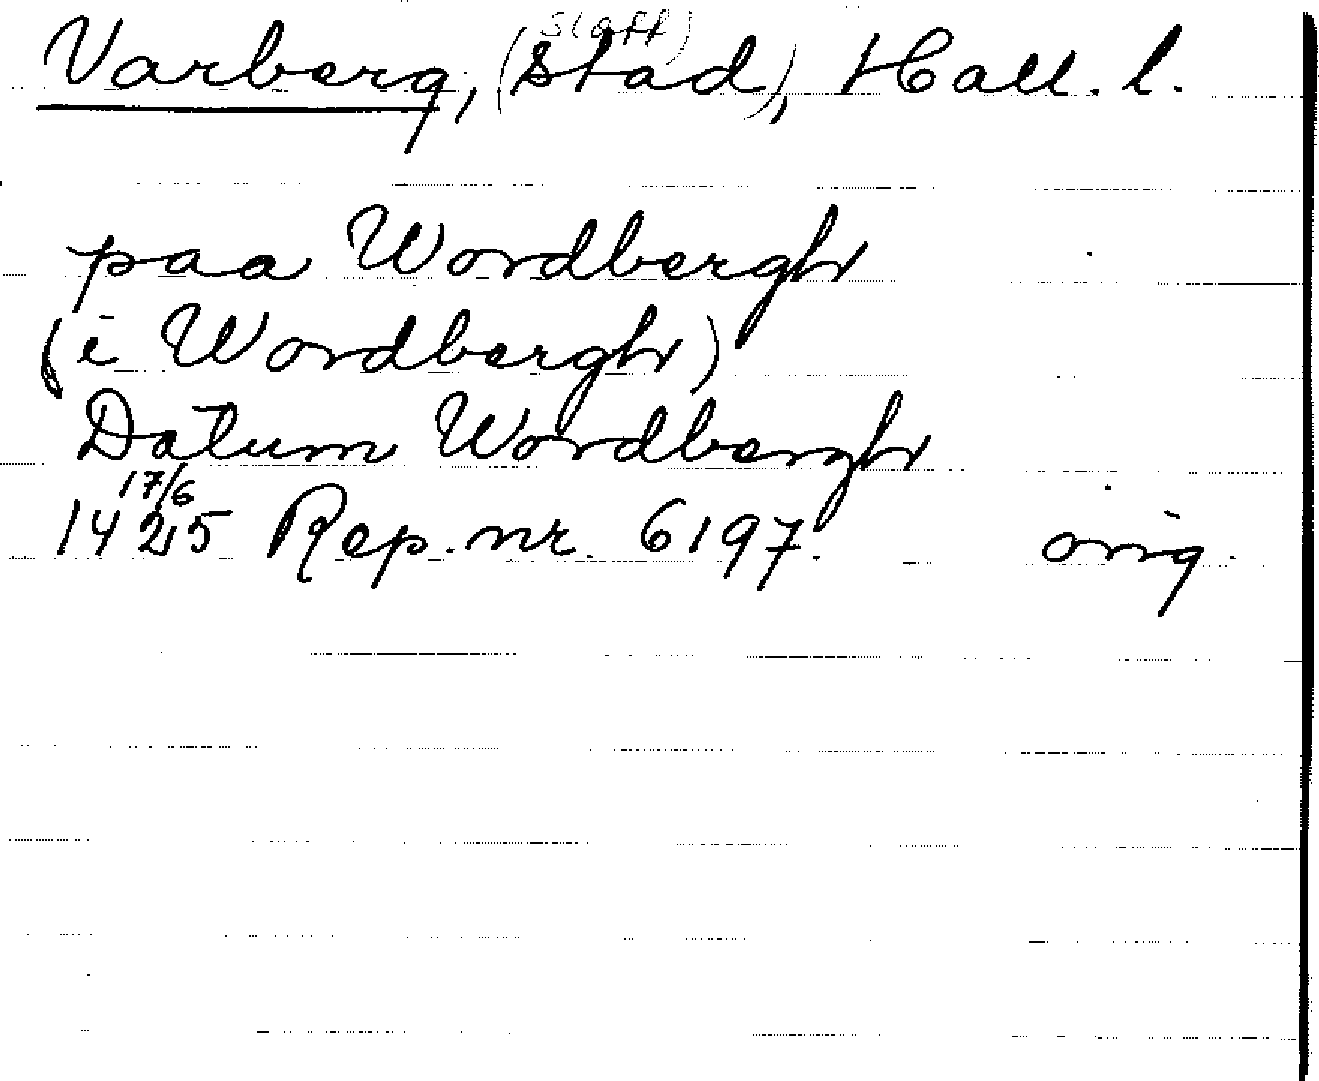 slott)
Varberg, (Stad), Hall. l.
paa Wordbergh
(i Wordbergh)
Datum Wordbergh
17/6
1425 Rep. nr. 6197. orig.